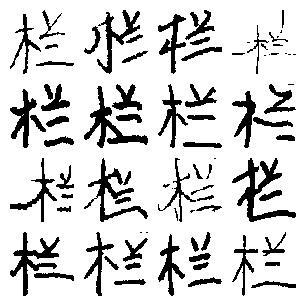 栏栏栏栏
栏栏栏栏
栏栏栏栏
栏栏栏栏